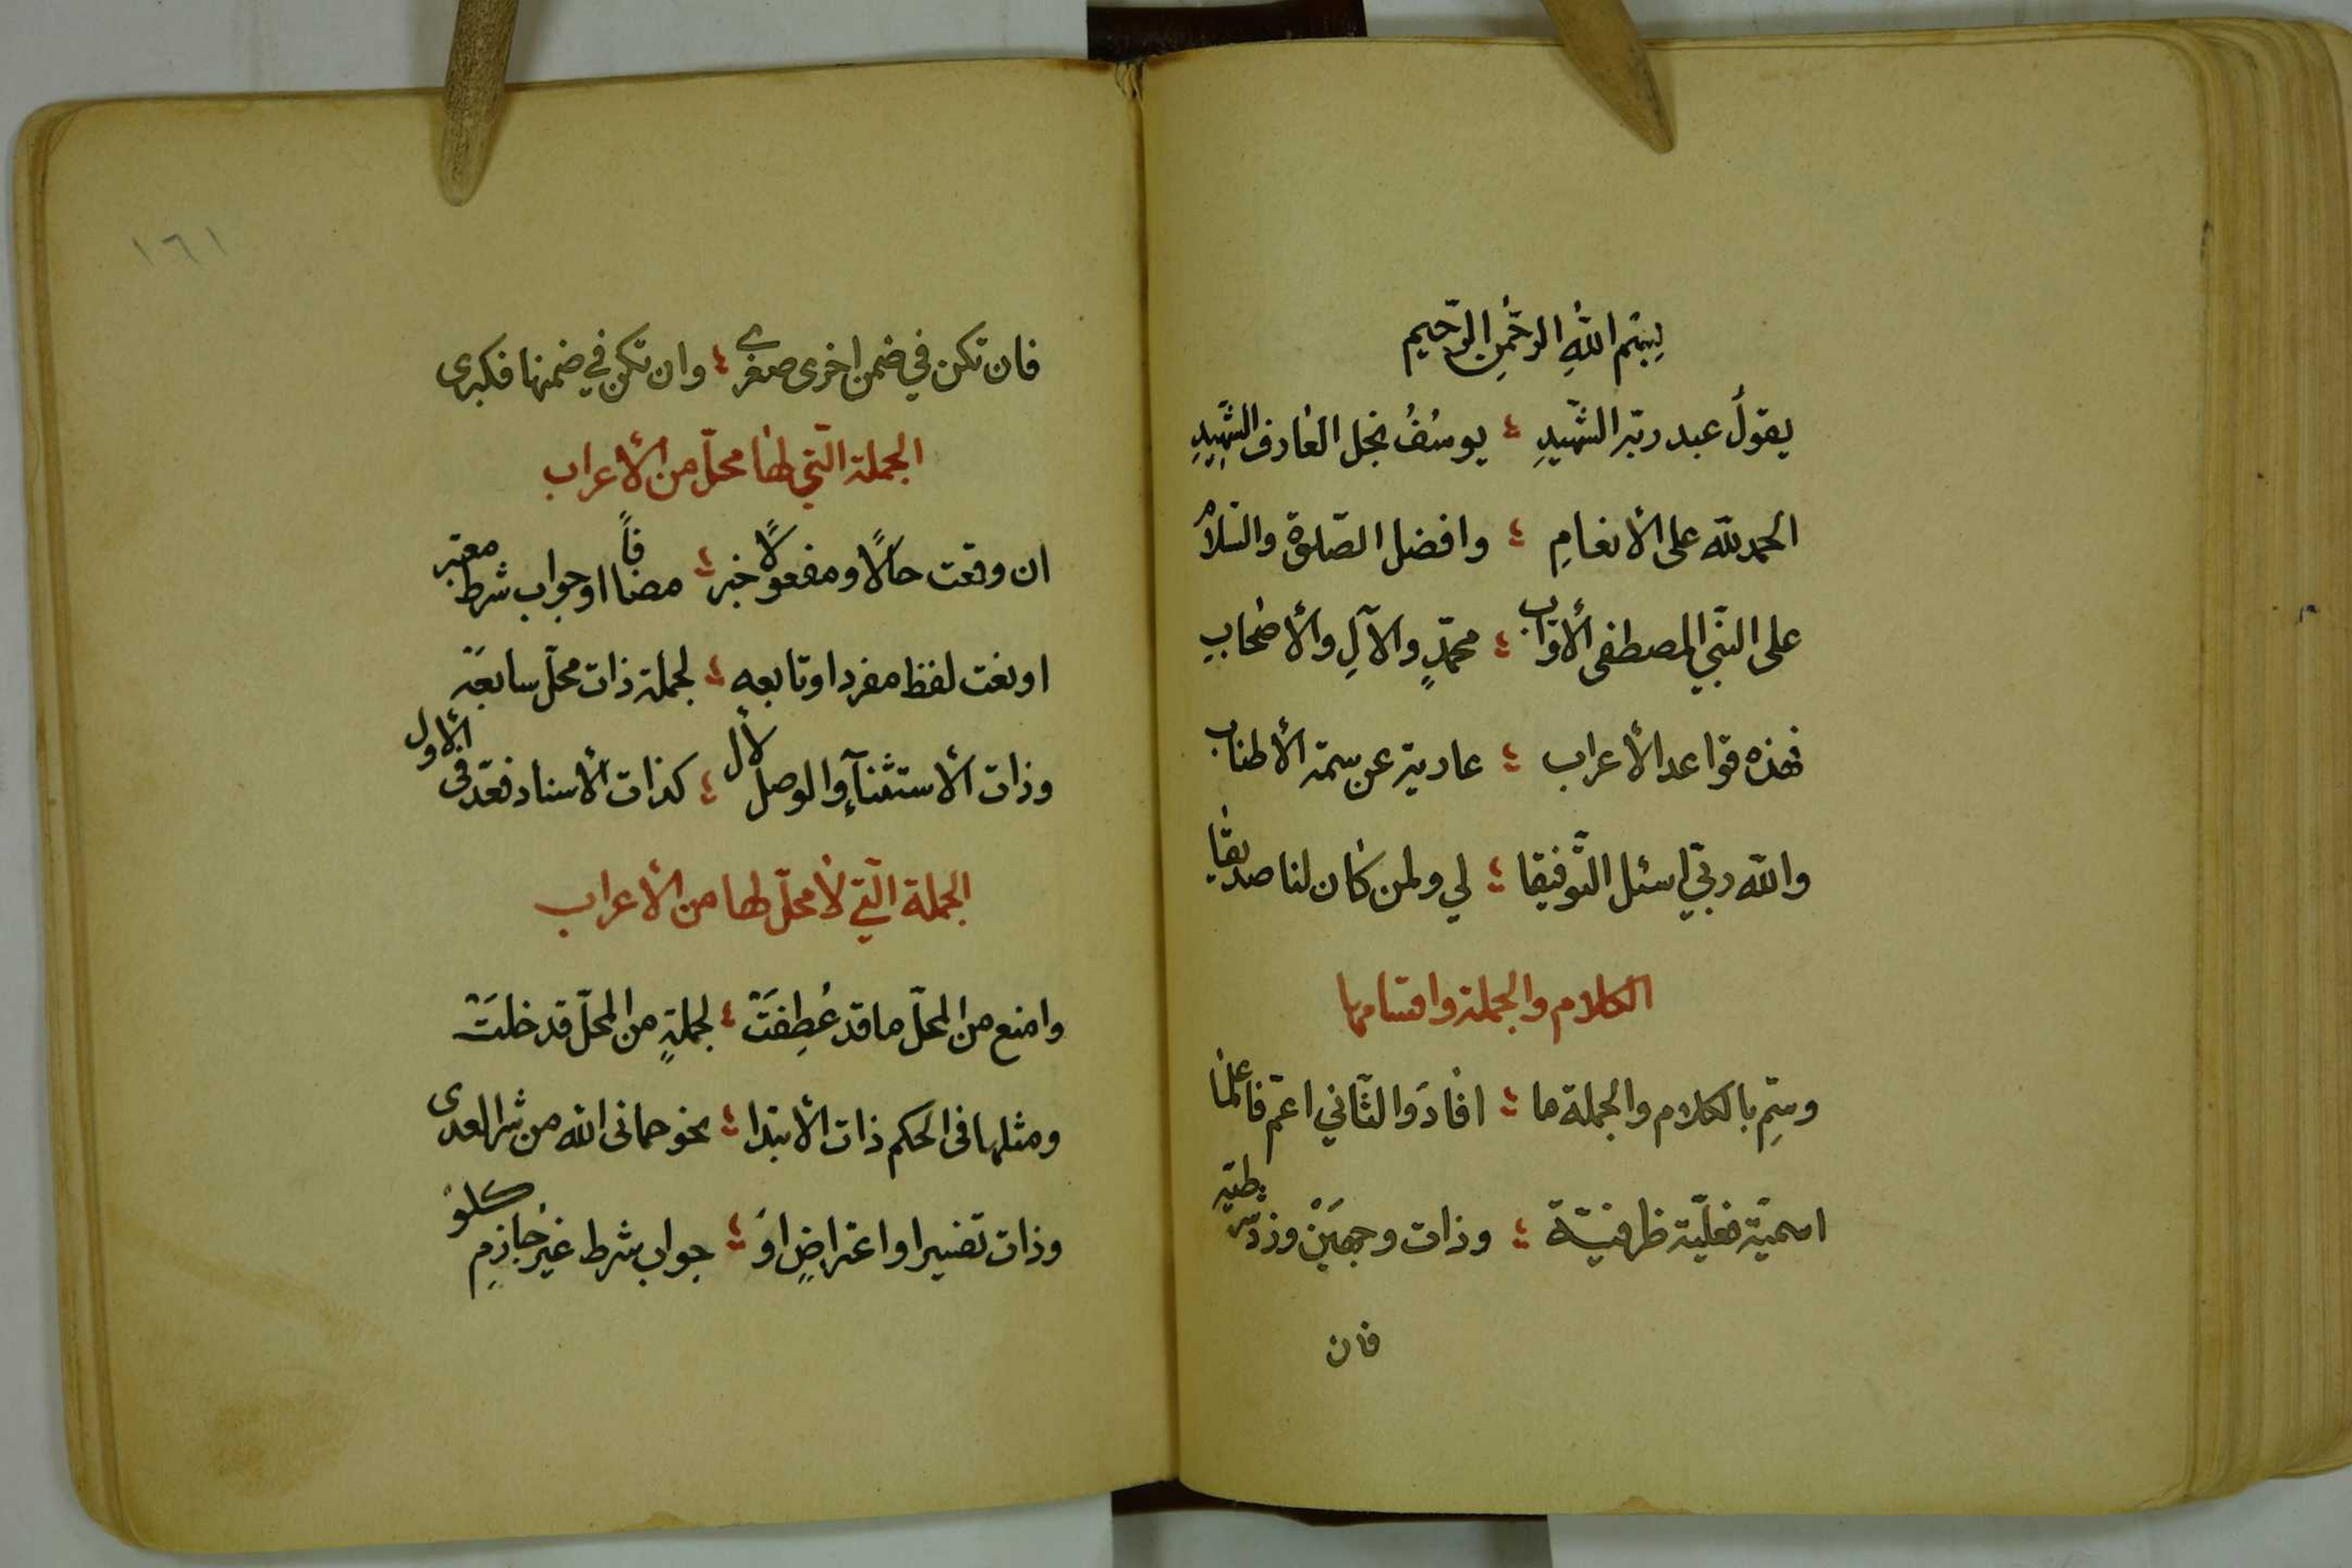 بِسْمِ اللهِ الرَّحْمٰنِ الرَّحِيم
يقولُ عبد ربّه الشّهيدِ ؛ يوسُفُ نجل العٰارف الشّهيدِ
الحمد للّه على الأنعامِ ؛ وافضل الصّلوة والسّلامِ
على النّبي المصطفى الأوّاب ؛ محمّدٍ والآلِ والأصحٰابِ
فهذه قواعد الأعراب ؛ عارية عن سمة الأطناب
والله ربّي اسئل التّوفيقا ؛ لي ولمن كٰان لنا صديقٰا
الكلام والجملة واقسامها
وسمِّ بالكلام والجملة ما ؛ افٰادَ والثّاني اعمّ فاعلمٰا
اسميّة فعليّة ظرفيّة ؛ وذات وجهَيْن وزد شرطيّه
فان
١٦١
فان تكن في ضمن اخرى صغرى ؛ وان تكن في ضمنها فكبرى
الجملة الّتي لهٰا محلّ من الأعراب
ان وقعت حالًا ومفعولًا خبر ؛ مضافاً او جواب شرط معتبر
او نعت لفظ مفرد او تابعه ؛ لجملة ذات محلّ سابعَة
وذات الأستثنآءِ والوصل لأل ؛ كذات الأسناد فعدّ في الأول
الجملة الّتي لٰا محلّ لها من الأعراب
وامنع من المحلّ ما قد عُطِفَتْ ؛ لجملةٍ من المحلّ قد خلَتْ
ومثلها فى الحكم ذات الأبتدا ؛ نحو حمانى الله من شر العدى
وذات تفسير او اعتراضٍ اوْ ؛ جواب شرط غيرُ جٰازمٍ كلوْ